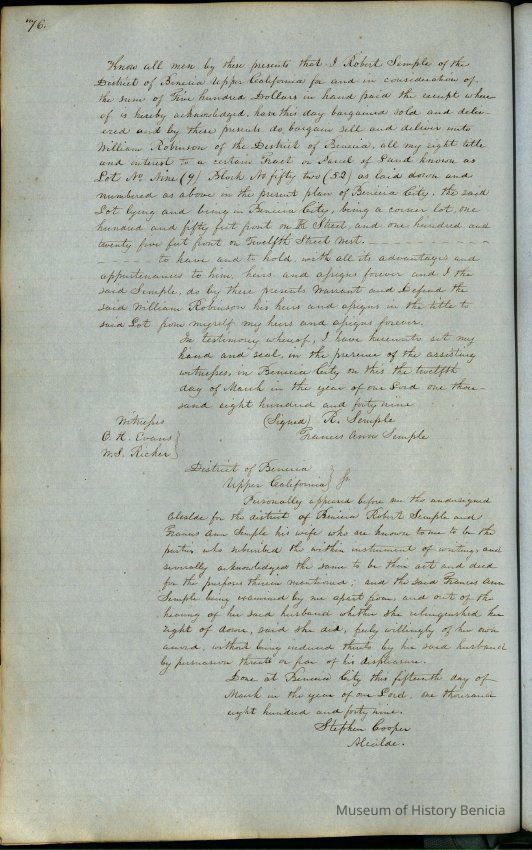 76.
Know all men by these presents that I Robert Semple of the
District of Benicia Upper California for and in consideration of
the sum of Five hundred Dollars in hand paid the receipt where
of is hereby acknowledged, have this day bargained sold and deliv-
ered and by these presents do, bargain sell and deliver unto
William Robinson of the District of Benicia, all my right title
and interest to a certain Tract or Parcel of Land known as
Lot No Nine (9) Block No fifty two (52) as laid down and
numbered as above in the present plan of Benicia City, the said
Lot lying and being in Benicia City, being a corner lot, one
hundred and fifty feet front on K Street, and one hundred and
twenty five feet front on Twelfth Street West.
to have and to hold, with all its advantages and
appurtenances to him, heirs and assigns forever and I the
said Semple, do by these presents Warrant and Defend the
said William Robinson his heirs and assigns in the title to
said Lot from myself my heirs and assigns forever.
In testimony whereof, I have hereunto set my
hand and seal, in the presence of the assisting
witnesses, in Benicia City on this the twelfth
day of March in the year of our Lord one thou-
sand eight hundred and forty nine
Witnesses (Signed) R. Semple
O. H. Evans Francis Ann Semple
W. S. Ricker
District of Benicia
Upper California
Personally appeared before me the undersigned
Alcalde for the district of Benicia Robert Semple and
Francis Ann Semple his wife who are known to me to be the
parties who subscribed the within instrument of writing and
severally acknowledged the same to be their act and deed
for the purposes therein mentioned; and the said Francis Ann
Semple being examined by me apart from, and out of the
hearing of her said husband whether she relinquished her
right of dower, said she did, freely willingly of her own
accord, without being induced thereto by her said husband
by persuasion threats or fear of his displeasure.
Done at Benicia City this fifteenth day of
March in the year of our Lord, one thousand
eight hundred and forty nine.
Stephen Cooper
Alcalde.
Museum of History Benicia